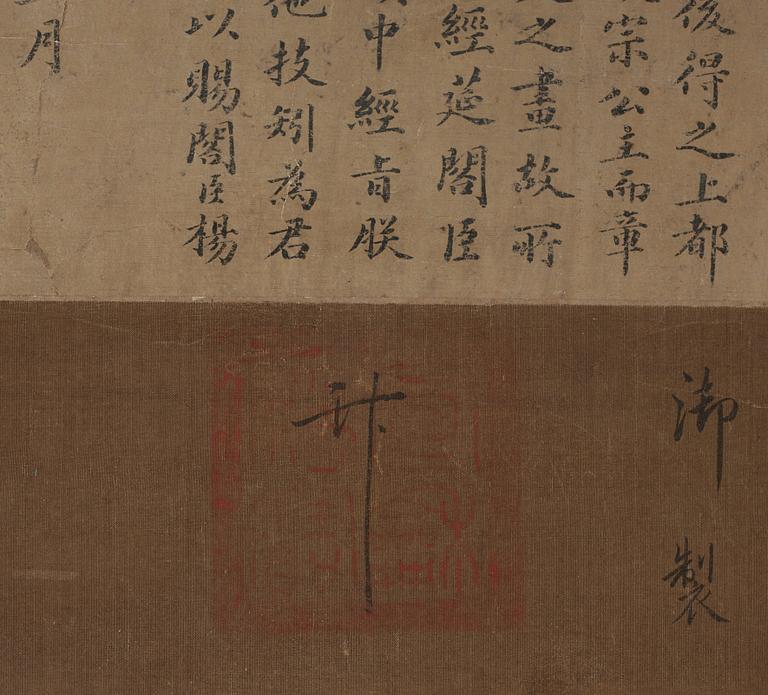 後得之上都
宗公主而章
之畫故所
經筵閣臣
中經旨朕
他技矧為君
以賜閣臣楊
月
御製